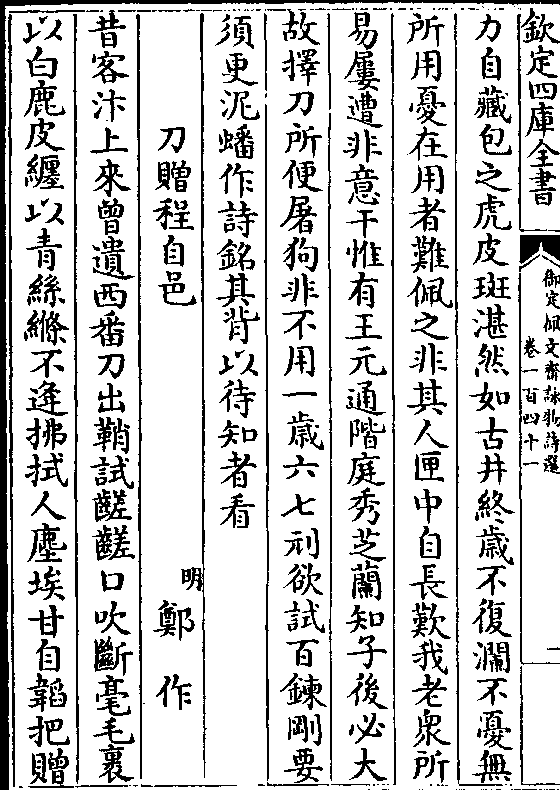 欽定四庫全書
御定佩文齋詠物詩選
卷一百四十一
一
力自藏包之虎皮斑湛然如古井終歲不復瀾不憂無
所用憂在用者難佩之非其人匣中自長歎我老衆所
易屢遭非意干惟有王元通階庭秀芝蘭知子後必大
故擇刀所便屠狗非不用一歲六七刓欲試百鍊剛要
須更泥蟠作詩銘其背以待知者看
刀贈程自邑
明 鄭作
昔客汴上來曾遺西番刀出鞘試齹齹口吹斷毫毛裹
以白鹿皮纏以青絲縧不逢拂拭人塵埃甘自韜把贈